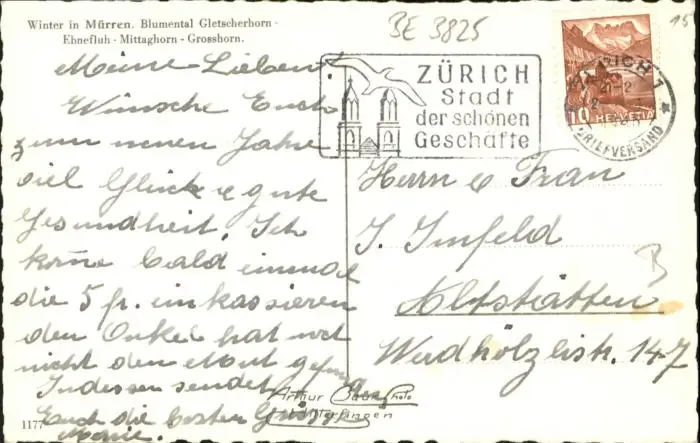 Winter in Mürren. Blumental Gletscherhorn -
Ebnefluh - Mittaghorn - Grosshorn.
BE 3825
15
Meine Lieben!
Wünsche Euch
zum neuen Jahre
viel Glück & gute
Gesundheit, Ich
kome bald einmal
die 5 fr. einkassieren
den Onkel hat noch
nicht den Mut
Indessen sendet
Euch die besten Grüsse
Marie.
1177
ZÜRICH
Stadt
der schönen
Geschäfte
ZÜRICH 1
BRIEFVERSAND
10 HELVETIA
Herrn & Frau
J. Imfeld
Altstätten
Werdhölzlistr. 147
B
Arthur Photo
Wilderswil